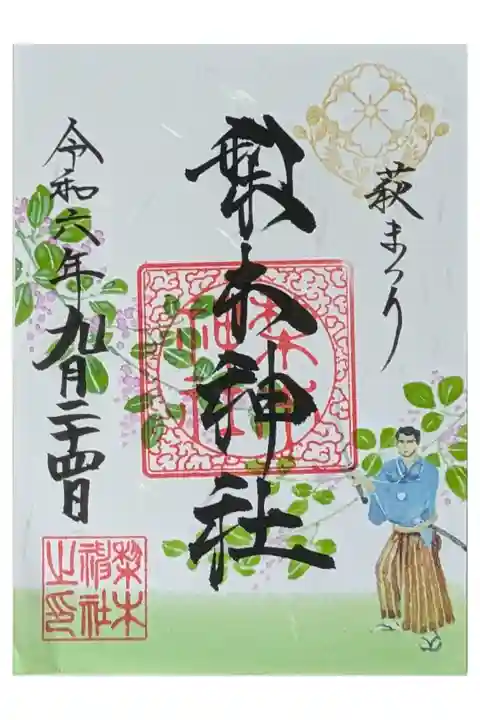 萩まつり
梨木神社
令和六年九月二十四日
梨木
神社
之印